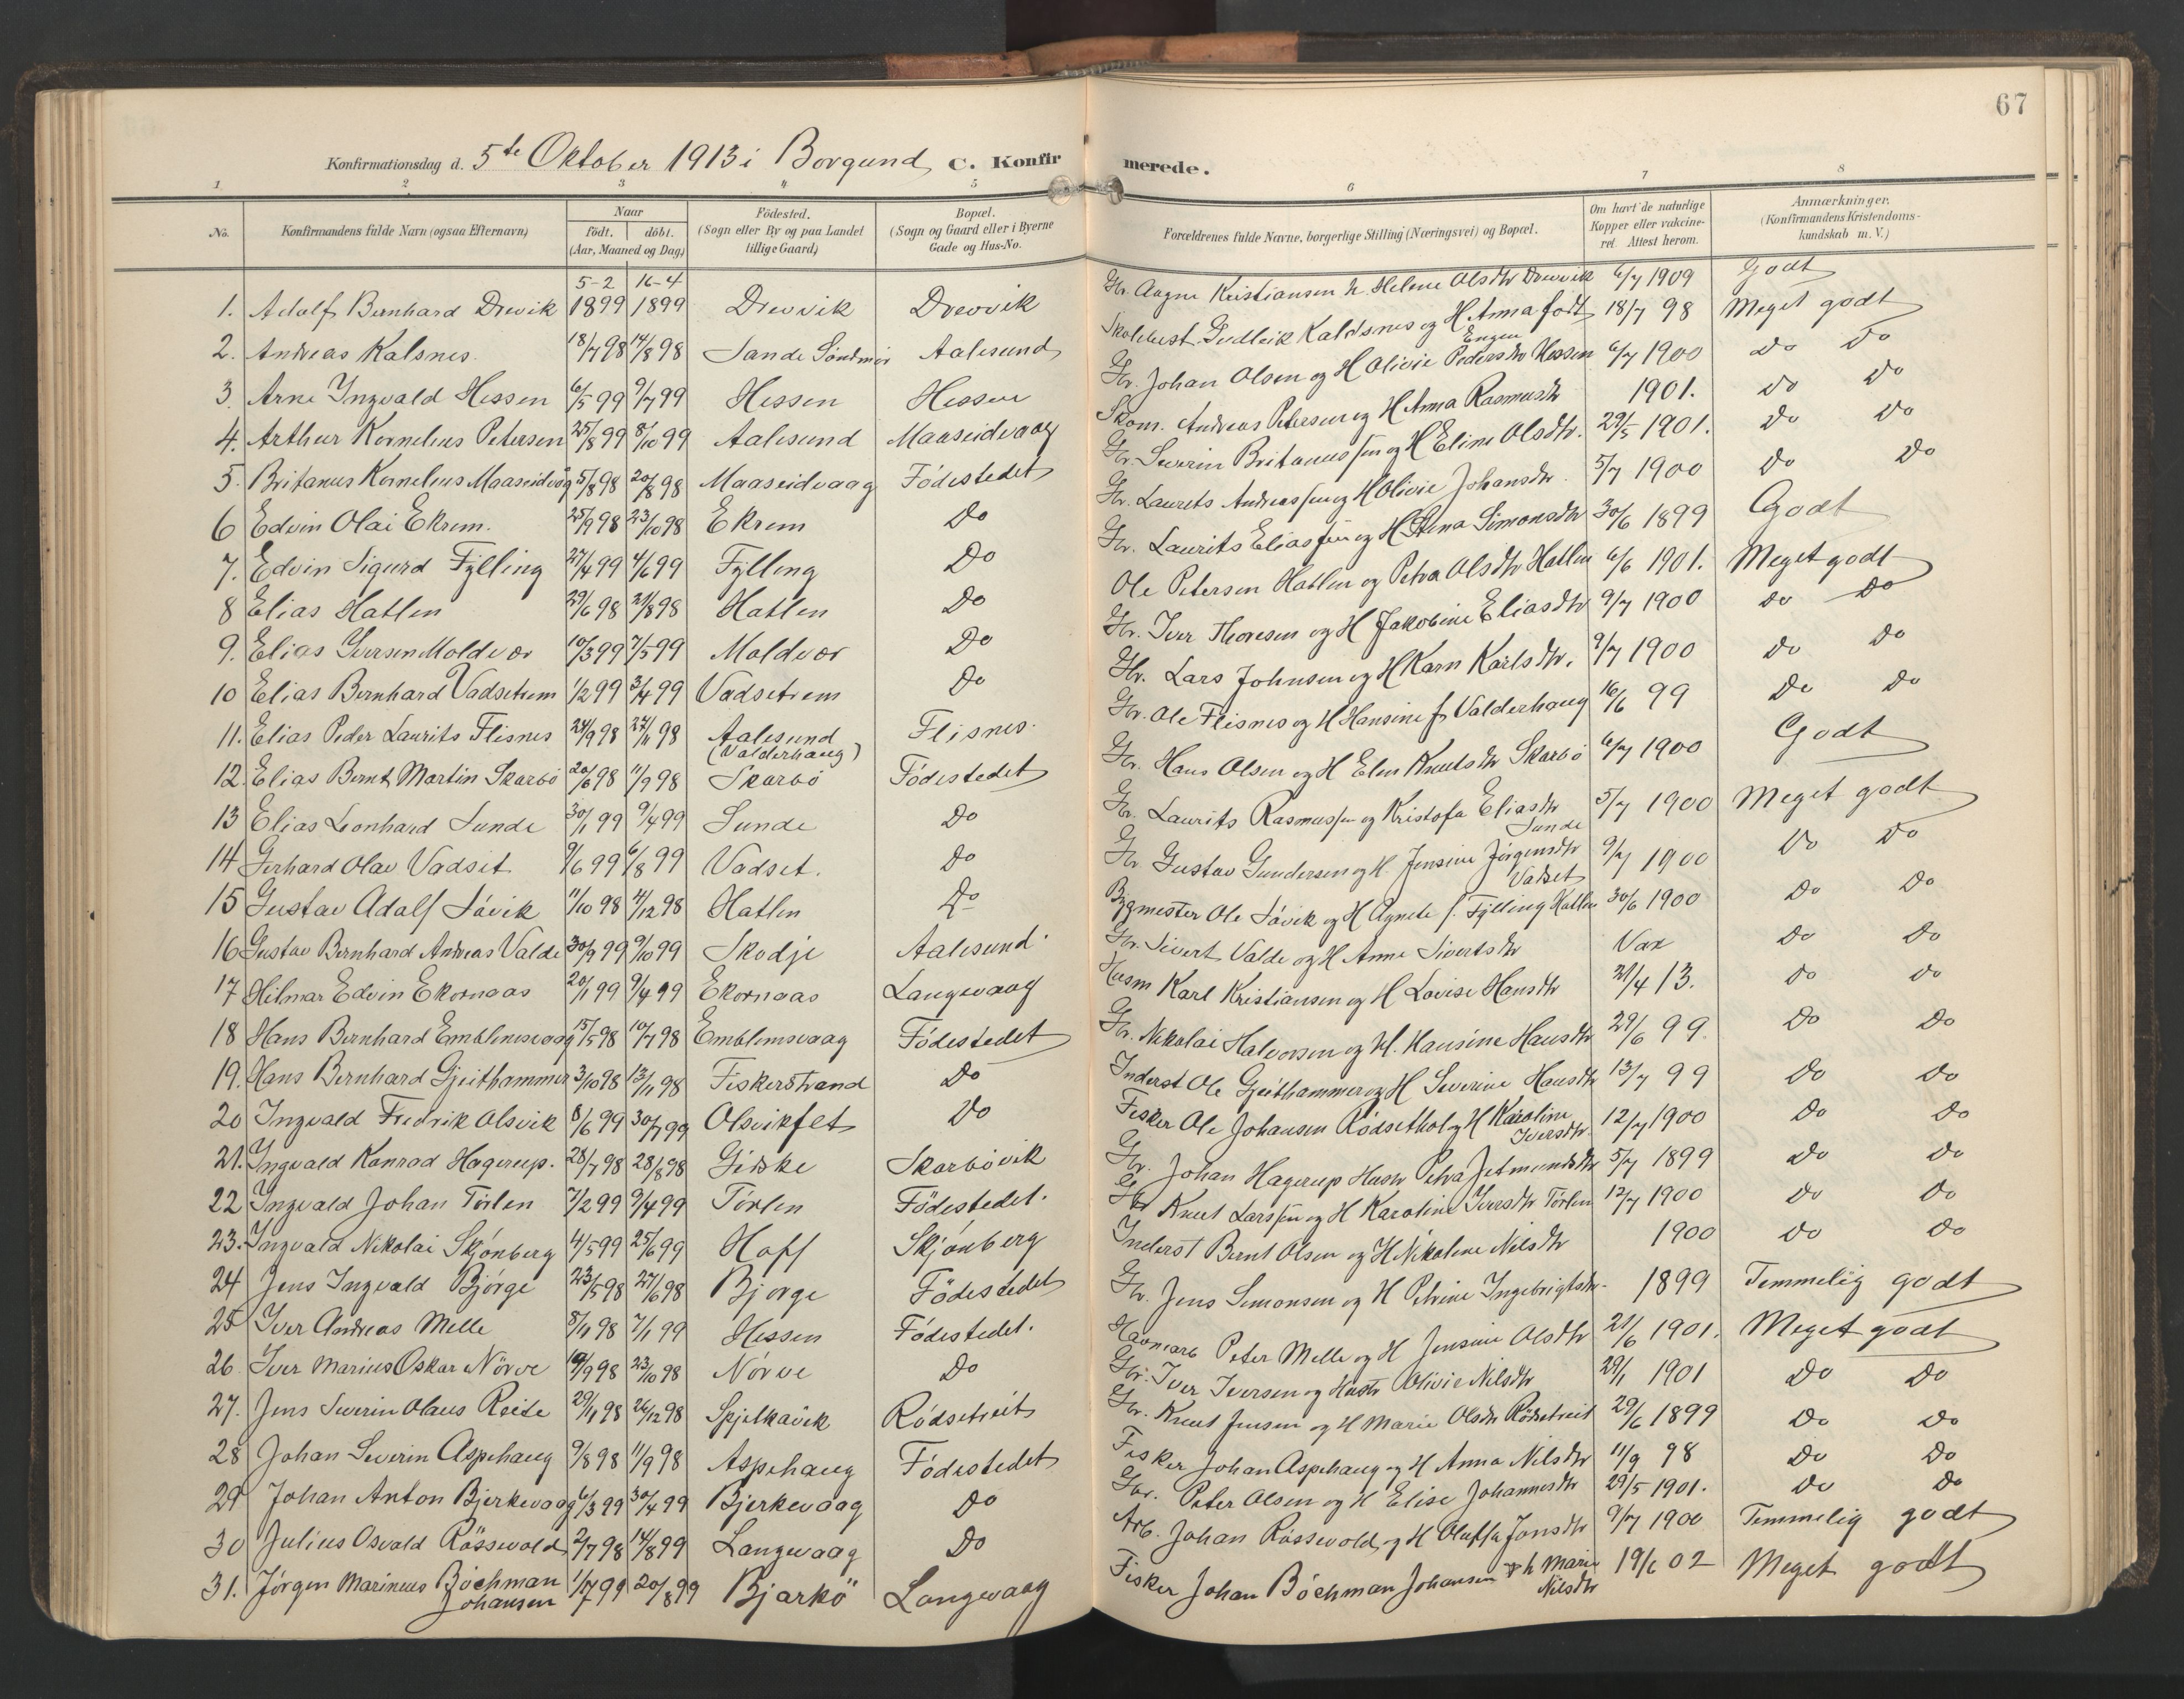 67
Konfirmationsdag d. 5te Oktober 1913 i Borgund C. Konfirmerede.
1 2 3 4 5 6 7 8
No. Konfirmandens fulde Navn (ogsaa Efternavn) Naar Födt. döbt. (Aar, Maaned og Dag) Födested. (Sogn eller By og paa Landet tillige Gaard) Bopæl. (Sogn og Gaard eller i Byerne Gade og Hus-No. Forældrenes fulde Navne, borgerlige Stilling (Næringsvei) og Bopæl. Om havt de naturlige Kopper eller vakcineret. Attest herom. Anmærkninger. (Konfirmandens Kristendomskundskab m. V.)
1. Adolf Bernhard Drevvik 5-2 1899 16-4 1899 Drevvik Drevvik Gbr. Aagne Kristiansen h. Helene Olsdtr Drevvik 6/7 1909 Godt
2. Andreas Kalsnes. 18/7 98 14/8 98 Sande Söndmör Aalesund Kaldsnes og H Anna födt Engen 18/7 98 Meget godt
3. Arne Ingvald Hessen 6/5 99 9/7 99 Hessen Hessen Gbr. Johan Olsen og H Olivie Pedersdtr Hessen 6/7 1900 Do Do
4. Arthur Kornelius Petersen 25/8 99 8/10 99 Aalesund Maaseidvaag Skom. Andreas Petersen og H Anna Rasmusdtr 1901. Do Do
5. Britanus Kornelius Maaseidvåg 5/8 98 20/8 98 Maaseidvaag Födestedet Gbr. Severin Britanussen og H Eline Olsdtr. 29/5 1901. Do Do
6 Edvin Olai Ekrem. 25/9 98 23/10 98 Ekrem Do Gbr. Laurits Andreassen og H Olivie Johansdtr. 5/7 1900 Do Do
7. Edvin Sigurd Fylling 27/4 99 4/6 99 Fylling Do Gbr. Laurits Eliassen og H Stena Simonsdtr 30/6 1899 Godt
8 Elias Hatlen 29/6 98 21/8 98 Hatlen Do Ole Petersen Hatlen og Petra Olsdtr Hatlen 6/6 1901. Meget godt
9. Elias Iversen Moldvær 10/3 99 7/5 99 Moldvær Do Gbr. Iver Thoresen og H Jakobine Eliasdtr 9/7 1900 Do Do
10 Elias Bernhard Vadsetrem 1/2 99 3/4 99 Vadsetrem Do Gbr. Lars Johnsen og H Karn Karlsdtr. 9/7 1900 Do Do
11. Elias Peder Laurits Flisnes 24/9 98 27/11 98 Aalesund (Valderhaug) Flisnes. Gbr. Ole Flisnes og H Hansine f. Valderhaug 16/6 99 Do Do
12. Elias Bernt Martin Skarbö 20/6 98 11/9 98 Skarbö Födestedet Gbr. Hans Olsen og H Elen Knutsdtr Skarbö 6/7 1900 Godt
13 Elias Leonhard Sunde 30/1 99 9/4 99 Sunde Do Gbr. Laurits Rasmussen og Kristofa Eliasdtr Sunde 5/7 1900 Meget godt
14 Gerhard Olav Vadset 9/6 99 6/8 99 Vadset. Do Gbr Gustav Gundersen og H. Jensine Jörgensdtr Vadset 9/7 1900 Do Do
15 Gustav Adolf Såvik 11/10 98 4/12 98 Hatlen Do Bygmester Ole Såvik og H Agnete f. Fylling Hatlen 30/6 1900 Do Do
16 Gustav Bernhard Andreas Valde 30/9 99 9/10 99 Skodje Aalesund. Gbr. Sivert Valde og H Anne Sivertsdtr Vax Do Do
17 Hilmar Edvin Ekornaas 20/1 99 9/4 99 Ekornaas Langevaag Husm Karl Kristiansen og H Lovise Hansdtr 21/4 13. Do Do
18 Hans Bernhard Emblemsvaag 15/5 98 10/7 98 Emblemsvaag Födestedet Gbr. Nikolai Halvorsen og H. Hansine Hansdtr 29/6 99. Do Do
19. Hans Bernhard Gjeithammer 3/10 98 13/11 98 Fiskerstrand Do Inderst Ole Gjeithammer og H Severine Hansdtr 13/7 99 Do Do
20 Ingvald Fredrik Olsvik 8/6 99 30/7 99 Olsvikflet Do Fisker Ole Johansen Rödsethol og H Karoline Iversdtr. 12/7 1900 Do Do
21. Ingvald Konrad Hagerup. 28/7 98 28/8 98 Gidske Skarbövik Gbr. Johan Hagerup Hustr Petra Jetmundsdtr 5/7 1899 Do Do
22 Ingvald Johan Törlen 7/2 99 9/4 99 Törlen Födestedet. Gbr Knut Larssen og H Karoline Iversdtr Törlen 12/7 1900 Do Do
23. Ingvald Nikolai Skjönberg 4/5 99 25/6 99 Hoff Skjönberg Inderst Bernt Olsen og H Nikoline Nilsdtr 1900 Do Do
24 Jens Ingvald Björge 23/5 98 27/6 98 Bjorge Födestedet Gbr. Jens Simonsen og H Petrine Ingebrigtsdtr. 1899 Temmelig godt
25 Iver Andreas Melle 8/11 98 7/1 99 Hessen Födestedet. Havnearb Peter Melle og H Jensine Olsdtr 21/6 1901. Meget godt
26. Iver Marius Oskar Nörve 19/9 98 23/10 98 Nörve Do Gbr. Iver Iversen og Hustr Olivie Nilsdtr 29/1 1901 Do Do
27. Jens Severin Olaus Reite 29/11 98 26/12 98 Spjelkavik Rödsetreit Gbr. Knut Jensen og H Marie Olsdtr Rödsetreit 29/6 1899 Do Do
28 Johan Severin Aspehaug 9/8 98 11/9 98 Aspehaug Födestedet Fisker Johan Aspehaug og H Anna Nilsdtr 11/9 98 Do Do
29 Johan Anton Bjerkevaag 6/3 99 30/4 99 Bjerkevaag Do Gbr. Peter Olsen og H Elise Johannesdtr 29/5 1901. Do Do
30 Julius Osvald Rössevold 2/7 98 14/8 99 Langevaag Do Arb. Johan Rössevold og H Oluffa Jonsdtr 9/7 1900 Temmelig godt
31. Jörgen Marineus Böchman Johansen 1/7 99 20/8 99 Bjarkö Langevaag Fisker Johan Böchman Johansen og h Marie Nilsdtr 19/6 02 Meget godt